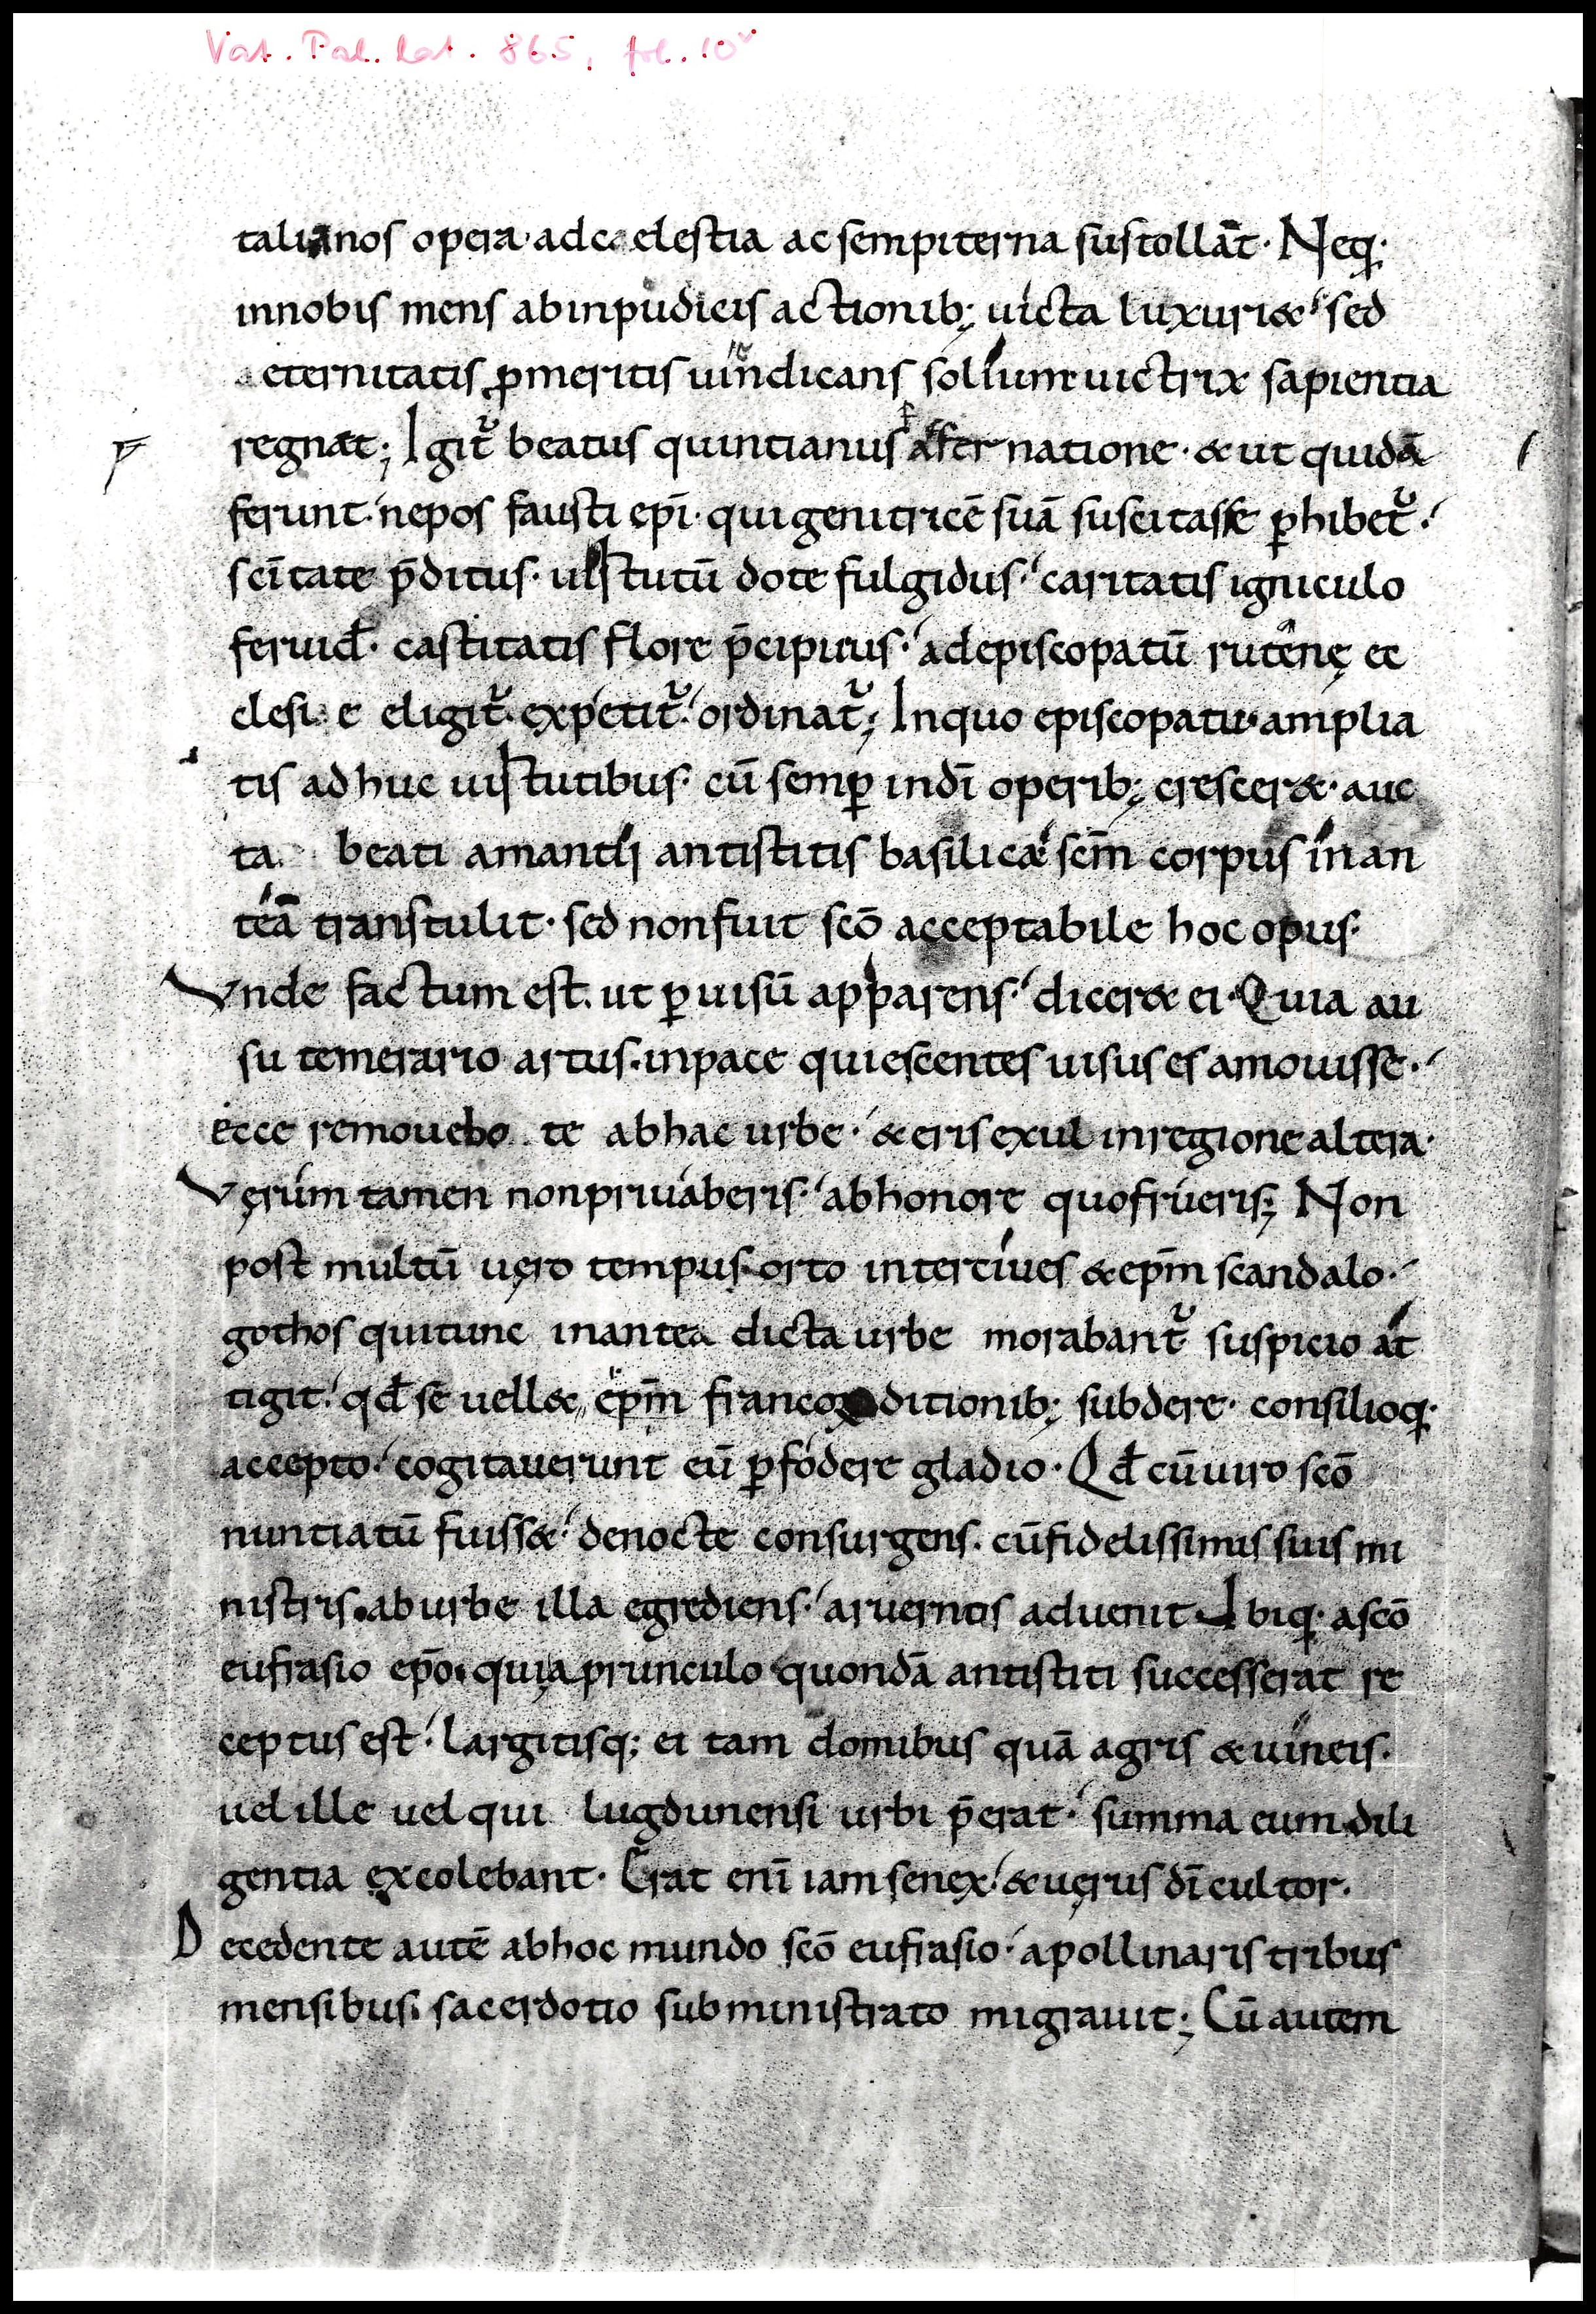 Vat. Pal. Lat. 865, fol. 10ᵛ
talianos opera· ad caelestia ac sempiterna sustollāt· Neq·
innobis mens abinpudicis actionib; uicta luxuriæ sed
aeternitatis pmeritis uindicans solium uictrix sapientia
regnat; Igit᷑ beatus quintianus afer natione· & ut quidā
ferunt· nepos fausti ep̄i· qui genitricē suā suscitasse ꝑhibet᷑·
scītate p̄ditus· uirtutū dote fulgidus· caritatis igniculo
feruid̵· castitatis flore p̄cipuus· adepiscopatū rutenę ec
clesiae eligit᷑· expetit᷑· ordinat᷑; Inquo episcopatu· amplia
tis adhuc uirtutibus· cū semꝑ indī operib; crescer&· auc
ta beati amandi antistitis basilicæ scm̄ corpus inan
teā transtulit· sed nonfuit scō acceptabile hoc opus·
Vnde factum est. ut ꝑ uisū apparens· dicer& ei· Quia au
su temerario artus· inpace quiescentes uisus es amouisse·
ecce remouebo te abhac urbe· & eris exul inregione altera·
Vęrum tamen nonpriuaberis· abhonore quofrueris; Non
post multū uęro tempus· orto interciues & ep̄m scandalo·
gothos quitunc inantea dicta urbe morabant᷑ suspicio at
tigit· qd̵ se uell& ep̄m francoꝝ ditionib; subdere· consilioq·
accepto· cogitauerunt eū ꝑfodere gladio· Qd̵ cū uiro scō
nuntiatū fuiss&· denocte consurgens· cū fidelissimis suis mi
nistris· aburbe illa egrediens· aruernos aduenit Ibiq· a scō
eufrasio ep̄o· quia prunculo quondā antistiti successerat re
ceptus est· Largitisq; ei tam domibus quā agris & uineis·
uel ille uel qui lugdunensi urbi p̄erat· summa eum dili
gentia excolebant· Erat enī iam senex· & uęrus dī cultor·
Decedente autē abhoc mundo scō eufrasio· apollinaris tribus
mensibus· sacerdotio subministrato migrauit; Cū autem